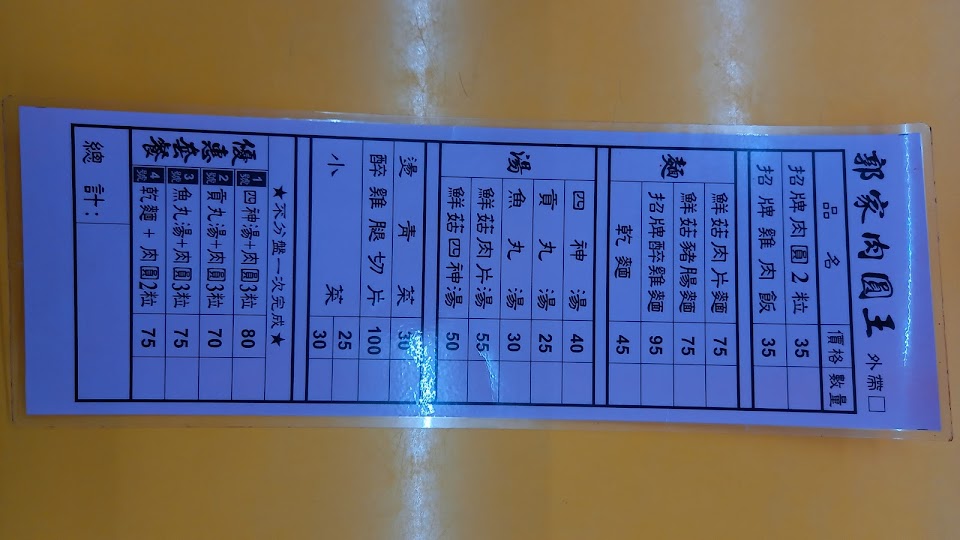 郭家肉圓王 外帶□
品名 價格 數量
招牌肉圓2粒 35
招牌雞肉飯 35
麵
鮮菇肉片麵 75
鮮菇豬腸麵 75
招牌醉雞麵 95
乾麵 45
湯
四神湯 40
貢丸湯 25
魚丸湯 30
鮮菇肉片湯 55
鮮菇四神湯 50
燙青菜 30
醉雞腿切片 100
小菜 25
30
★不分盤一次完成★
優惠套餐
1號 四神湯+肉圓3粒 80
2號 貢丸湯+肉圓3粒 70
3號 魚丸湯+肉圓3粒 75
4號 乾麵+肉圓2粒 75
總計: